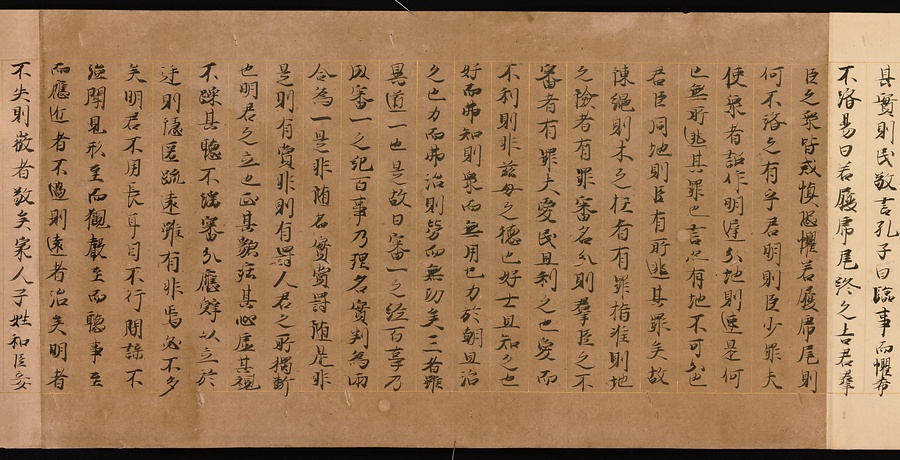 其實則民敬言孔子曰臨事而懼希
不路易曰若履虎尾終之吉若羣
臣之衆皆戒慎恐懼若履虎尾則
何不路之有乎君明則臣少罪夫
使衆者詔作明遲分地則速是何
也無所逃其罪也言亦有地不可分也
君臣同地則臣有所逃其罪矣故
陳繩則木之枉者有罪措准則地
之險者有罪審名分則羣臣之不
審者有罪夫愛民且利之也愛而
不利則非慈母之德也好士且知之也
好而弗知則衆而無用也力於朝且治
之也力而弗治則勞而無功矣三者雖
異道一也是故曰審一之經百事乃
成審一之紀百事乃理名實判為兩
合為一是非随名實賞罰随是非
是則有賞非則有罰人君之所獨斷
也明君之立也正其貌莊其心虛其視
不躁其聽不淫審分應辞以立於
廷則隱匿疏遠雖有非焉必不多
矣明君不用長耳目不行間諜不
强聞見形至而觀聲至而聽事至
而應近者不過則遠者治矣明者
不失則微者敬矣家人子姓和臣妾